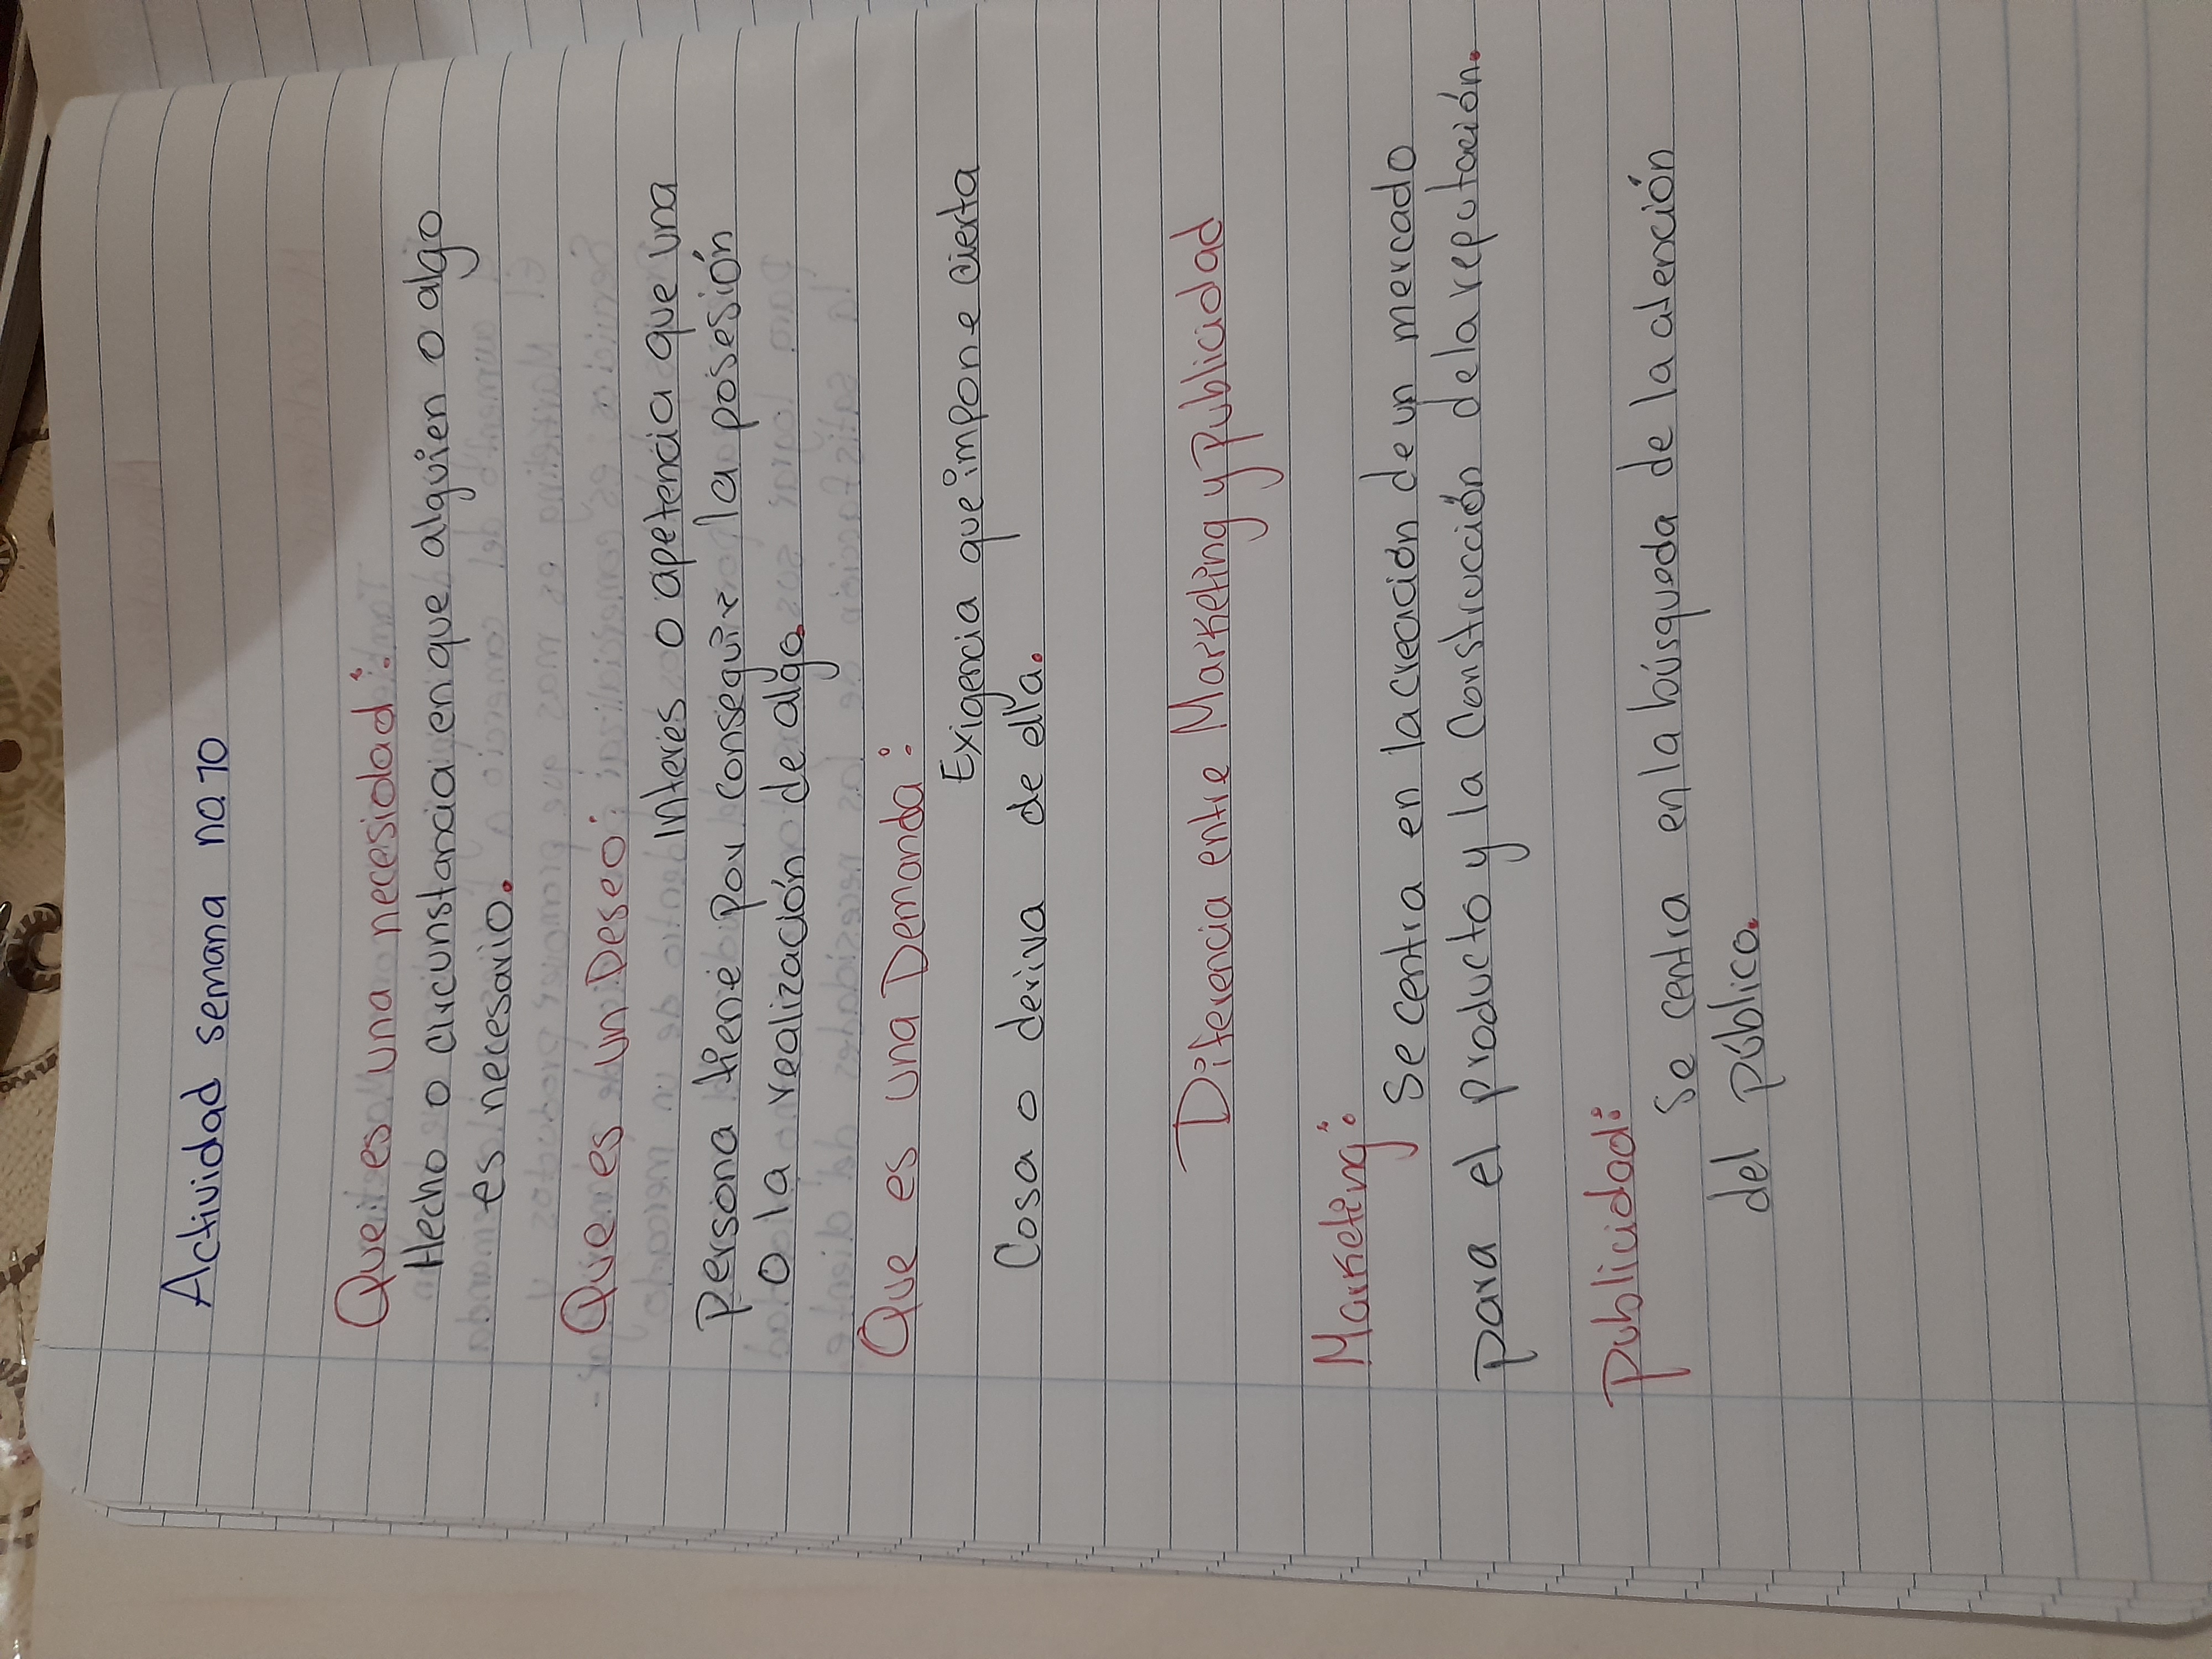 Actividad semana no. 10
Que es una necesidad:
Hecho o circunstancia en que alguien o algo
es necesario.
Que es un Deseo:
Interés o apetencia que una
Persona tiene por conseguir la posesión
o la realización de algo.
Que es una Demanda:
Exigencia que impone cierta
Cosa o deriva de ella.
Diferencia entre Marketing y Publicidad
Marketing:
Se centra en la creación de un mercado
para el producto y la Construcción de la reputación.
Publicidad:
Se centra en la búsqueda de la atención
del público.